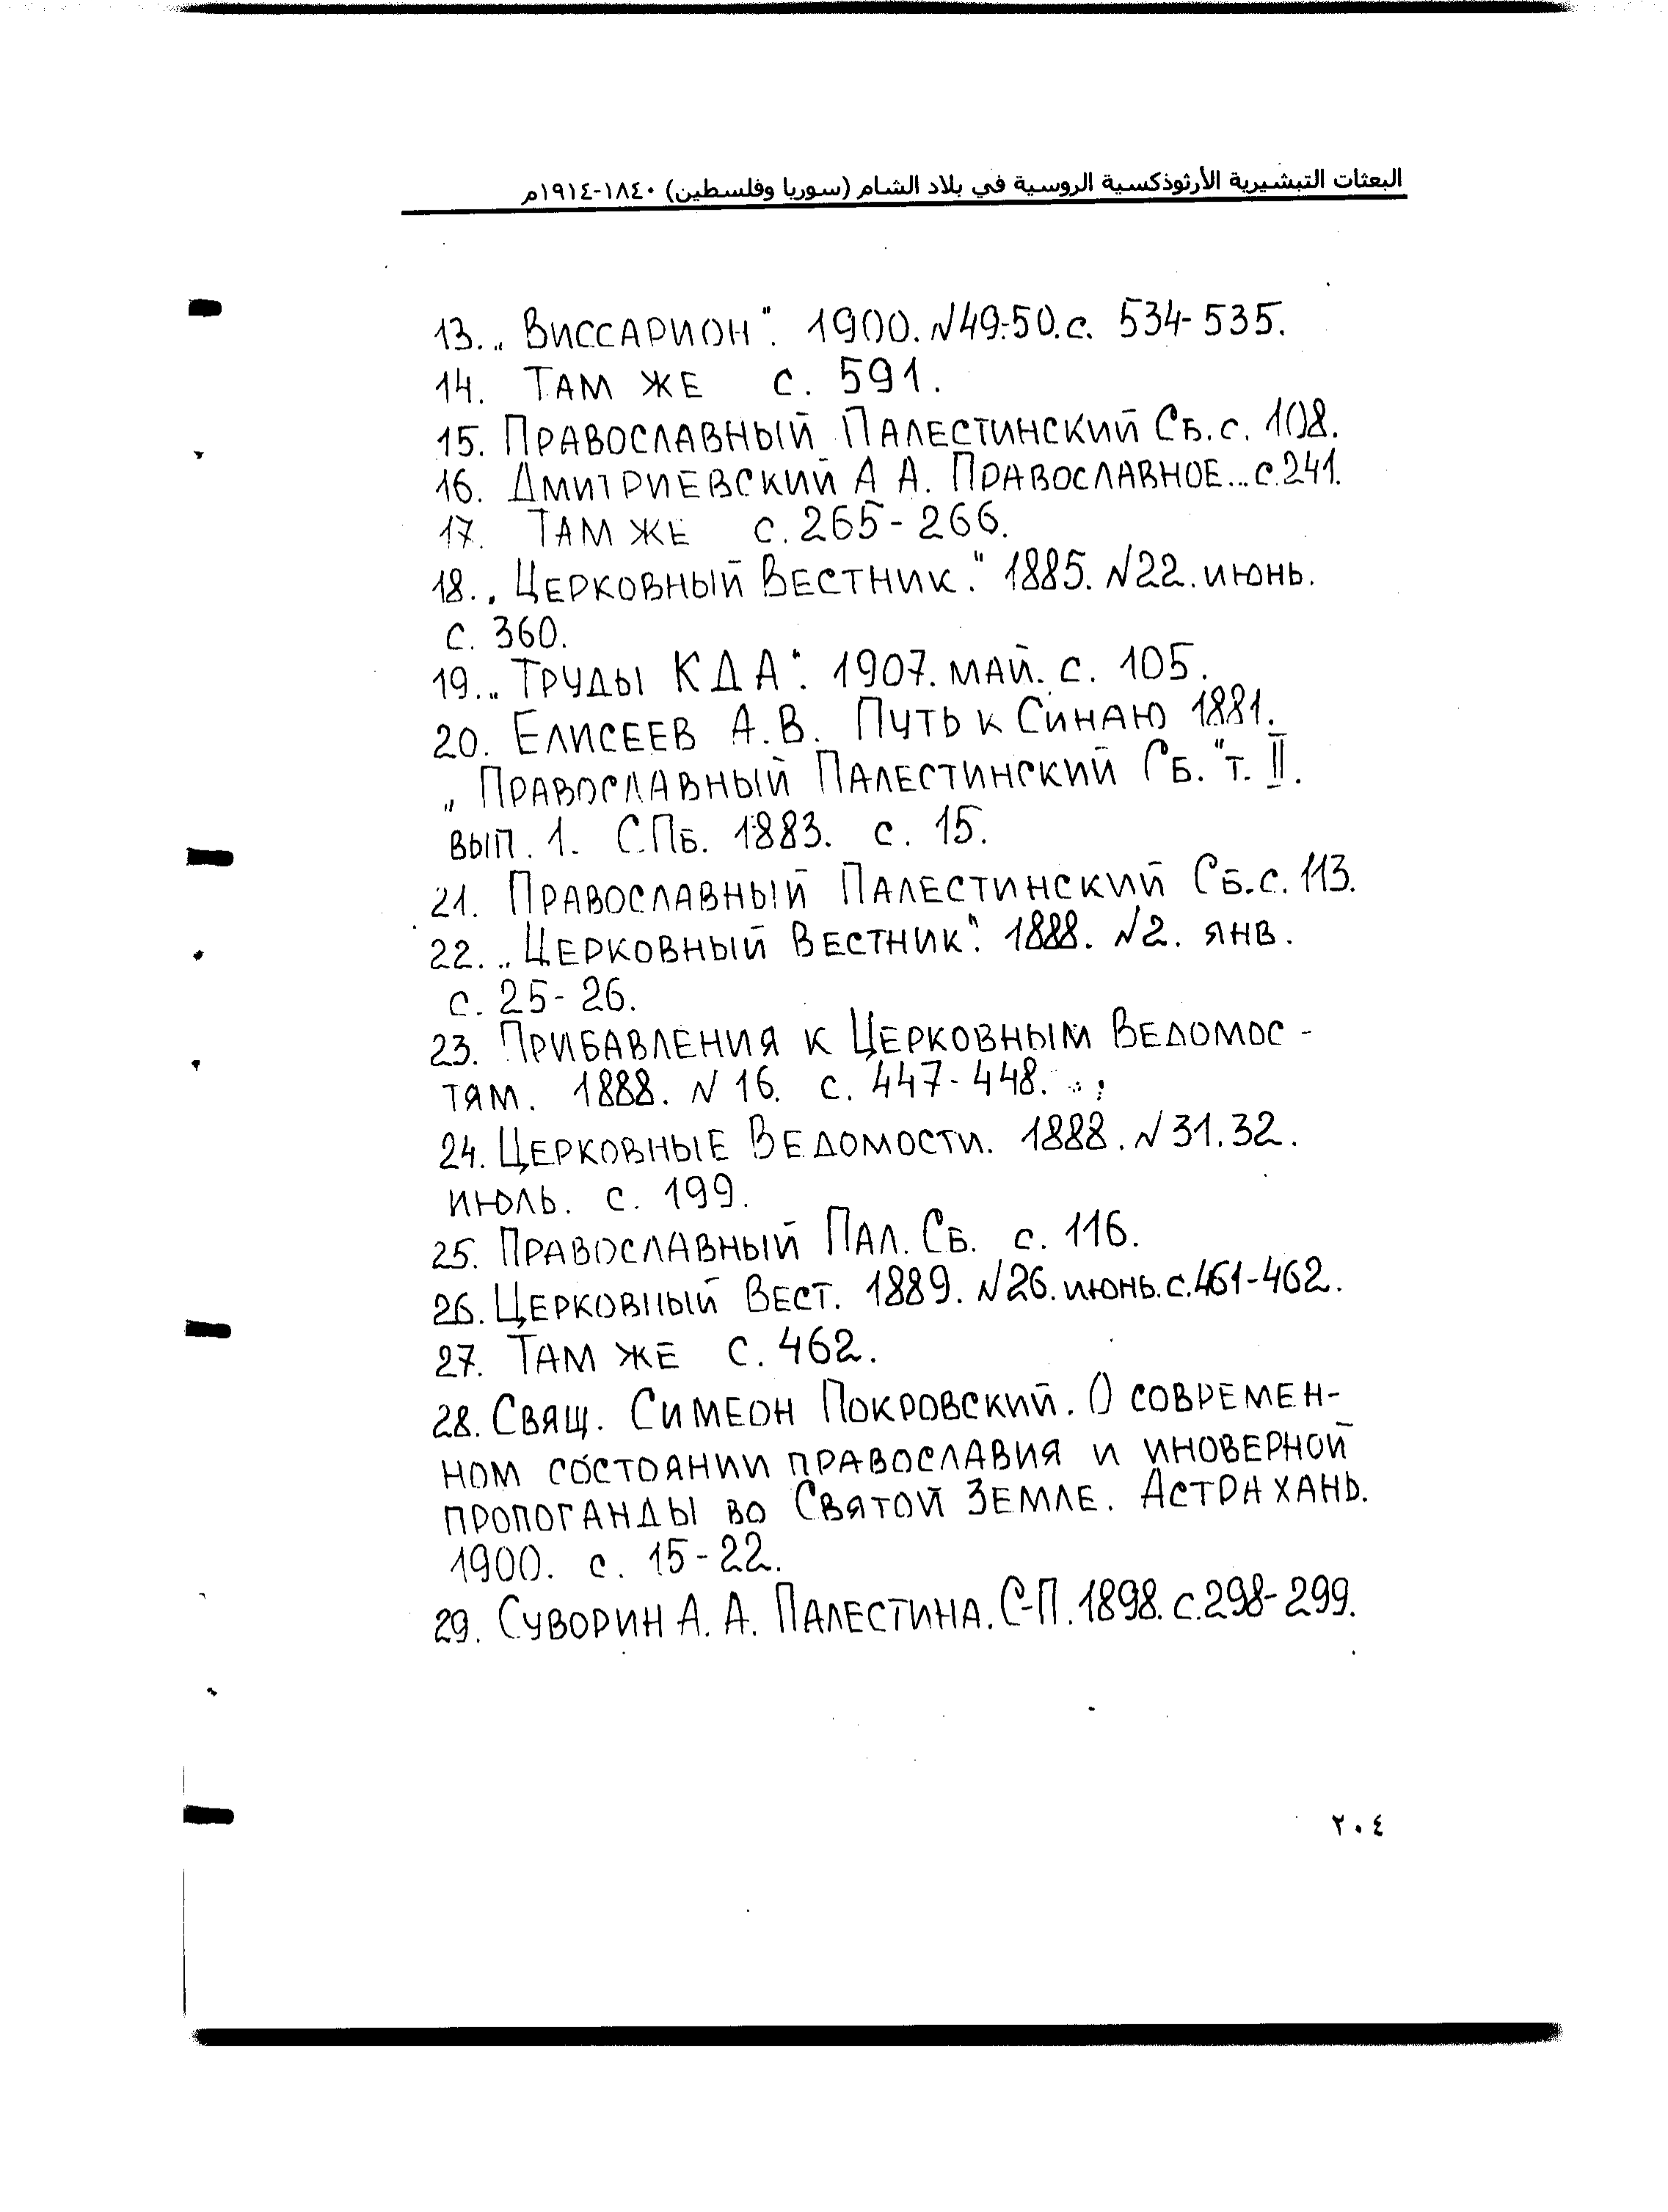 البعثات التبشيرية الأرثوذكسية الروسية في بلاد الشام (سوريا وفلسطين) ١٨٤٠-١٩١٤م
13. „ Виссарион". 1900. N49-50. с. 534-535.
14. Там же с. 591.
15. Православный Палестинский Сб. с. 108.
16. Дмитриевский А А. Православное... с. 241.
17. Там же с. 265-266.
18. „ Церковный Вестник." 1885. N22. июнь.
с. 360.
19. „ Труды КДА". 1907. май. с. 105.
20. Елисеев А.В. Путь к Синаю 1881.
„ Православный Палестинский Сб." т. II.
вып. 1. СПб. 1883. с. 15.
21. Православный Палестинский Сб. с. 113.
22. „ Церковный Вестник". 1888. N2. янв.
с. 25-26.
23. Прибавления к Церковным Ведомос-
тям. 1888. N 16. с. 447-448.
24. Церковные Ведомости. 1888. N 31.32.
июль. с. 199.
25. Православный Пал. Сб. с. 116.
26. Церковный Вест. 1889. N26. июнь. с. 461-462.
27. Там же с. 462.
28. Свящ. Симеон Покровский. О современ-
ном состоянии православия и иноверной
пропоганды во Святой Земле. Астрахань.
1900. с. 15-22.
29. Суворин А. А. Палестина. С-П. 1898. с. 298-299.
٢٠٤